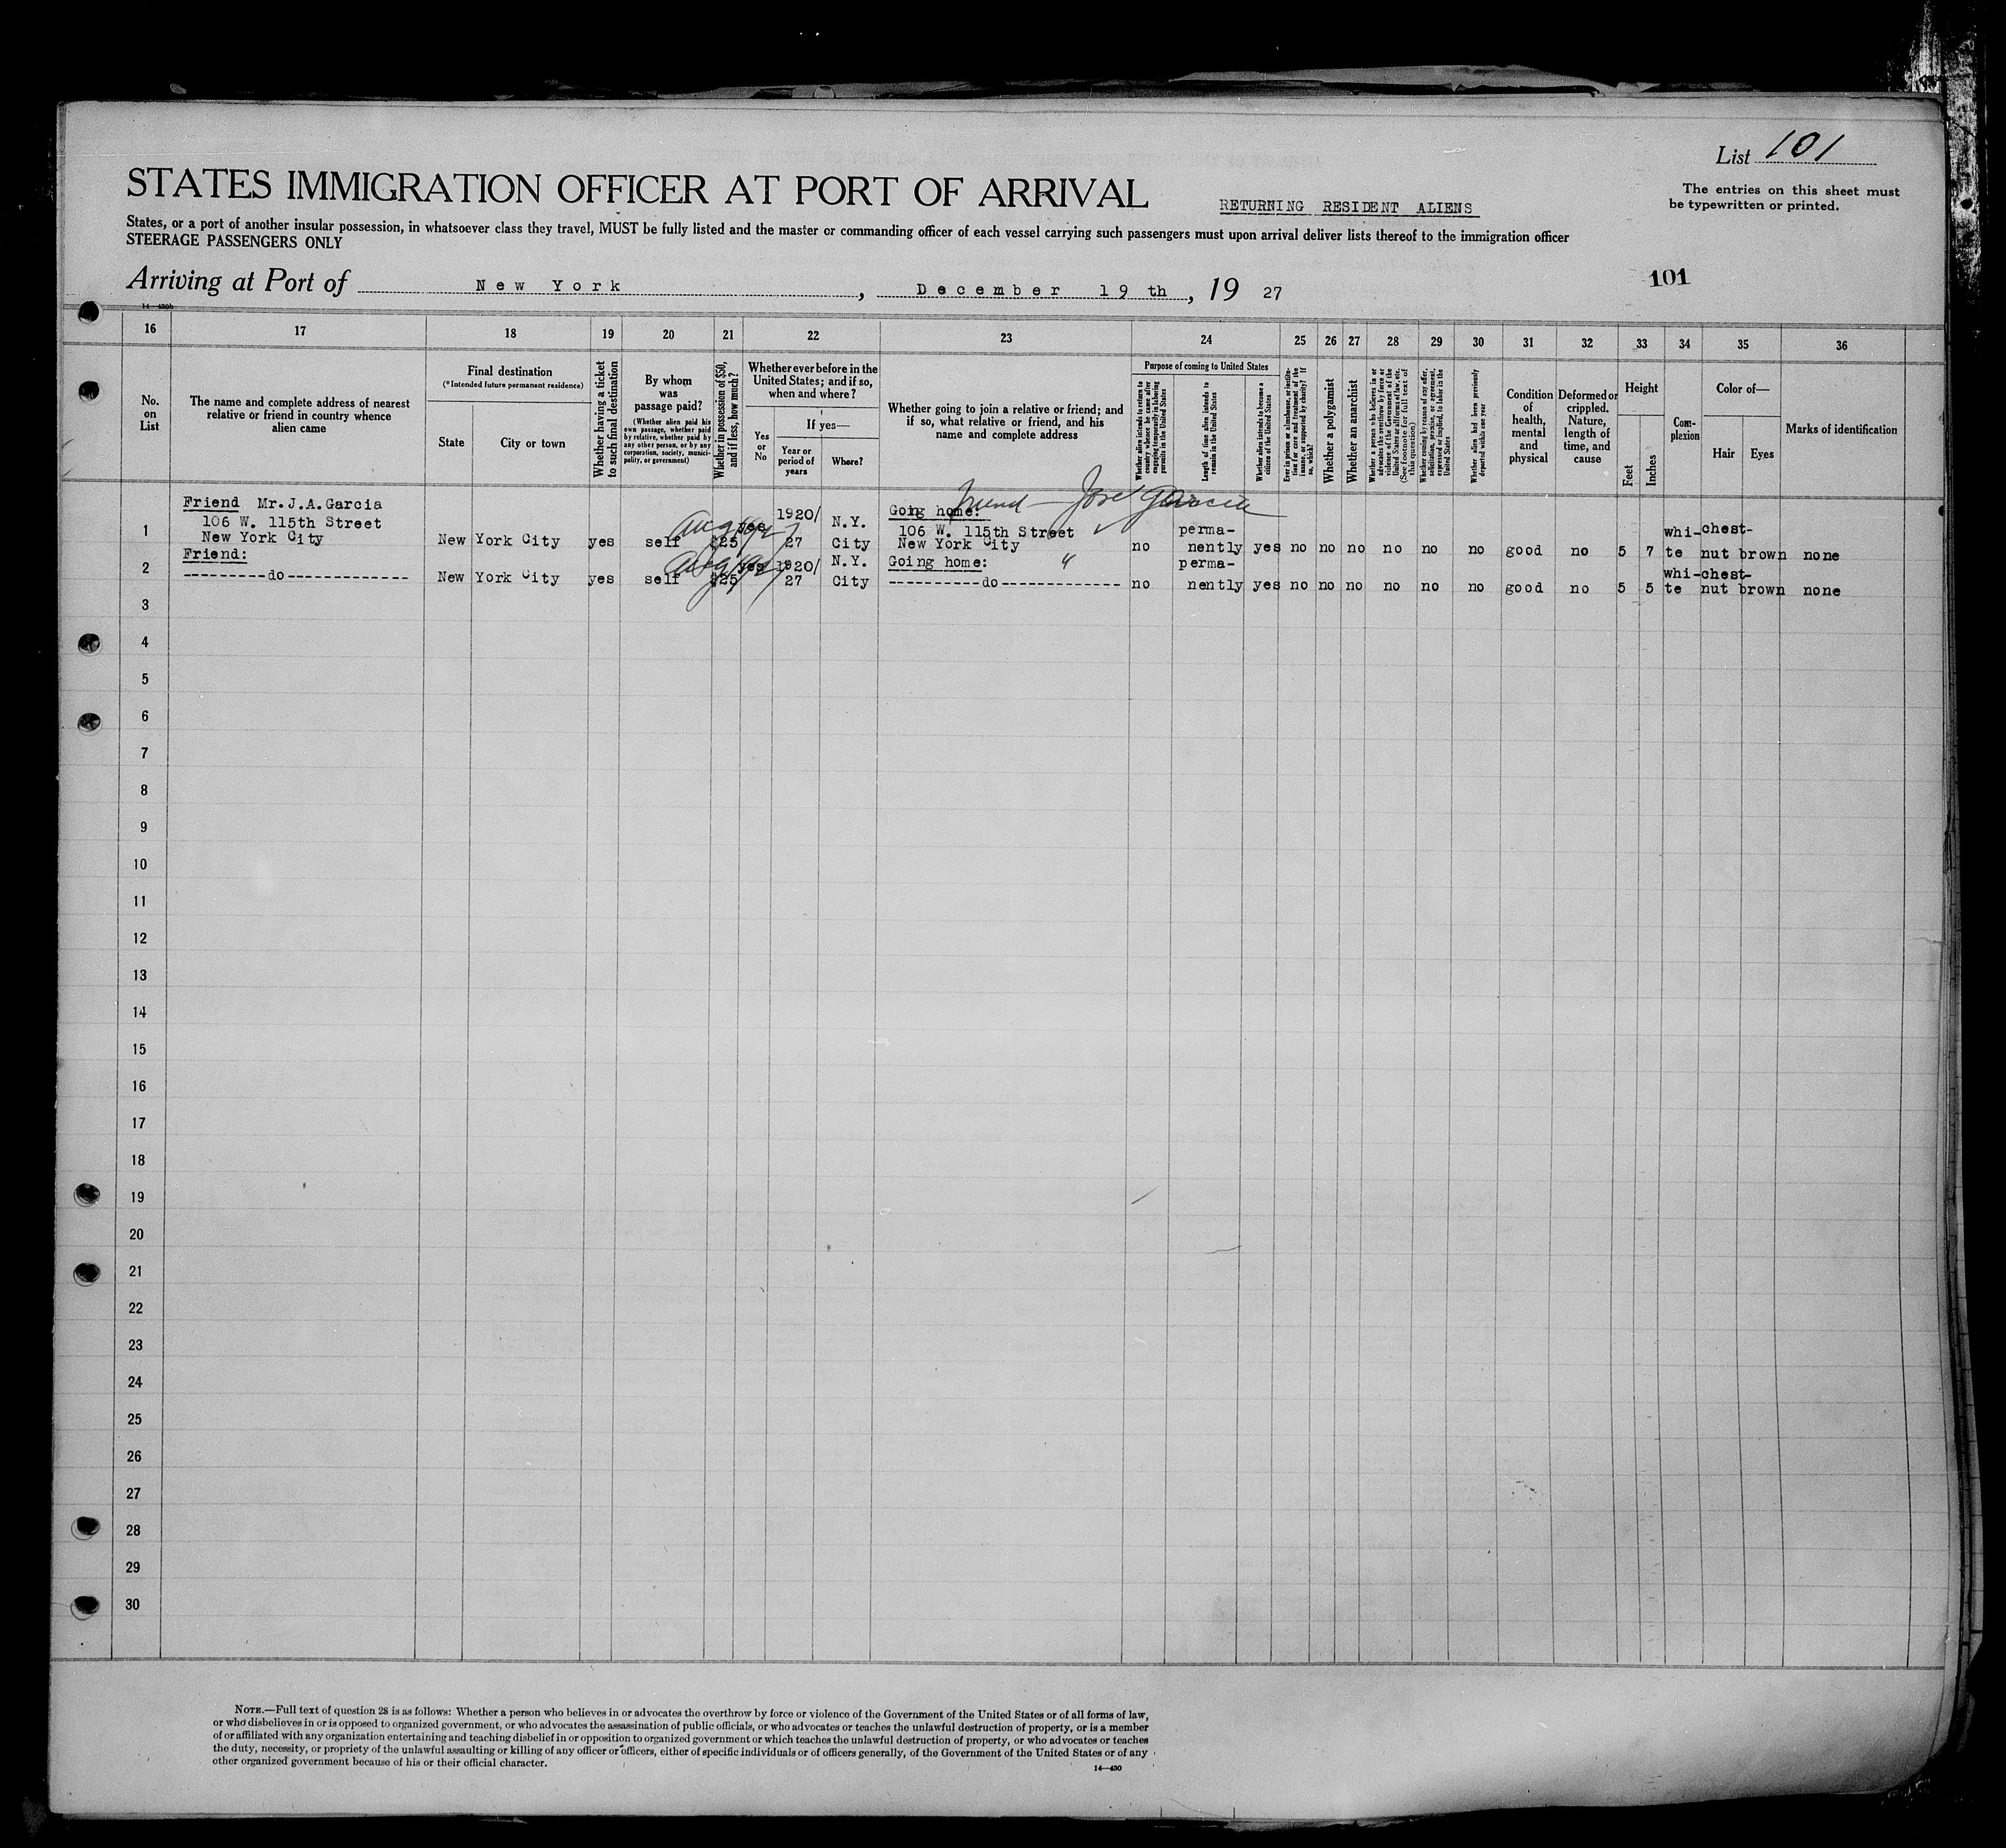 List 101
STATES IMMIGRATION OFFICER AT PORT OF ARRIVAL
RETURNING RESIDENT ALIENS
The entries on this sheet must
be typewritten or printed.
States, or a port of another insular possession, in whatsoever class they travel, MUST be fully listed and the master or commanding officer of each vessel carrying such passengers must upon arrival deliver lists thereof to the immigration officer
STEERAGE PASSENGERS ONLY
101
Arriving at Port of New York, December 19th, 19 27
14—430b
16 17 18 19 20 21 22 23 24 25 26 27 28 29 30 31 32 33 34 35 36
No. on List
The name and complete address of nearest
relative or friend in country whence
alien came
Final destination
(*Intended future permanent residence)
State
City or town
Whether having a ticket
to such final destination
By whom
was
passage paid?
(Whether alien paid his
own passage, whether paid
by relative, whether paid by
any other person, or by any
corporation, society, munici-
pality, or government)
Whether in possession of $50,
and if less, how much?
Whether ever before in the
United States; and if so,
when and where?
Yes
or
No
If yes—
Year or
period of
years
Where?
Whether going to join a relative or friend; and
if so, what relative or friend, and his
name and complete address
Purpose of coming to United States
Whether alien intends to return to
country whence he came after
engaging temporarily in laboring
pursuits in the United States
Length of time alien intends to
remain in the United States
Whether alien intends to become a
citizen of the United States
Ever in prison or almshouse, or institu-
tion for care and treatment of the
insane, or supported by charity? If
so, which?
Whether a polygamist
Whether an anarchist
Whether a person who believes in or
advocates the overthrow by force or
violence of the Government of the
United States or all forms of law, etc.
(See footnote for full text of
this question)
Whether coming by reason of any offer,
solicitation, promise, or agreement,
expressed or implied, to labor in the
United States
Whether alien had been previously
deported within one year
Condition
of
health,
mental
and
physical
Deformed or
crippled.
Nature,
length of
time, and
cause
Height
Feet
Inches
Com-
plexion
Color of—
Hair
Eyes
Marks of identification
friend — Jose Garcia
1 Friend Mr.J.A.Garcia
106 W. 115th Street
New York City
New York City yes self $25 yes 1920/27 N.Y. City
Going home:
106 W. 115th Street
New York City
no perma-nently yes no no no no no no good no 5 7 whi-te chest-nut brown none
2 Friend:
----------do-------------
New York City yes self $25 yes 1920/27 N.Y. City
Going home: "
----------do-------------
no perma-nently yes no no no no no no good no 5 5 whi-te chest-nut brown none
3
4
5
6
7
8
9
10
11
12
13
14
15
16
17
18
19
20
21
22
23
24
25
26
27
28
29
30
NOTE.—Full text of question 28 is as follows: Whether a person who believes in or advocates the overthrow by force or violence of the Government of the United States or of all forms of law,
or who disbelieves in or is opposed to organized government, or who advocates the assassination of public officials, or who advocates or teaches the unlawful destruction of property, or is a member
of or affiliated with any organization entertaining and teaching disbelief in or opposition to organized government or which teaches the unlawful destruction of property, or who advocates or teaches
the duty, necessity, or propriety of the unlawful assaulting or killing of any officer or officers, either of specific individuals or of officers generally, of the Government of the United States or of any
other organized government because of his or their official character.
14—430